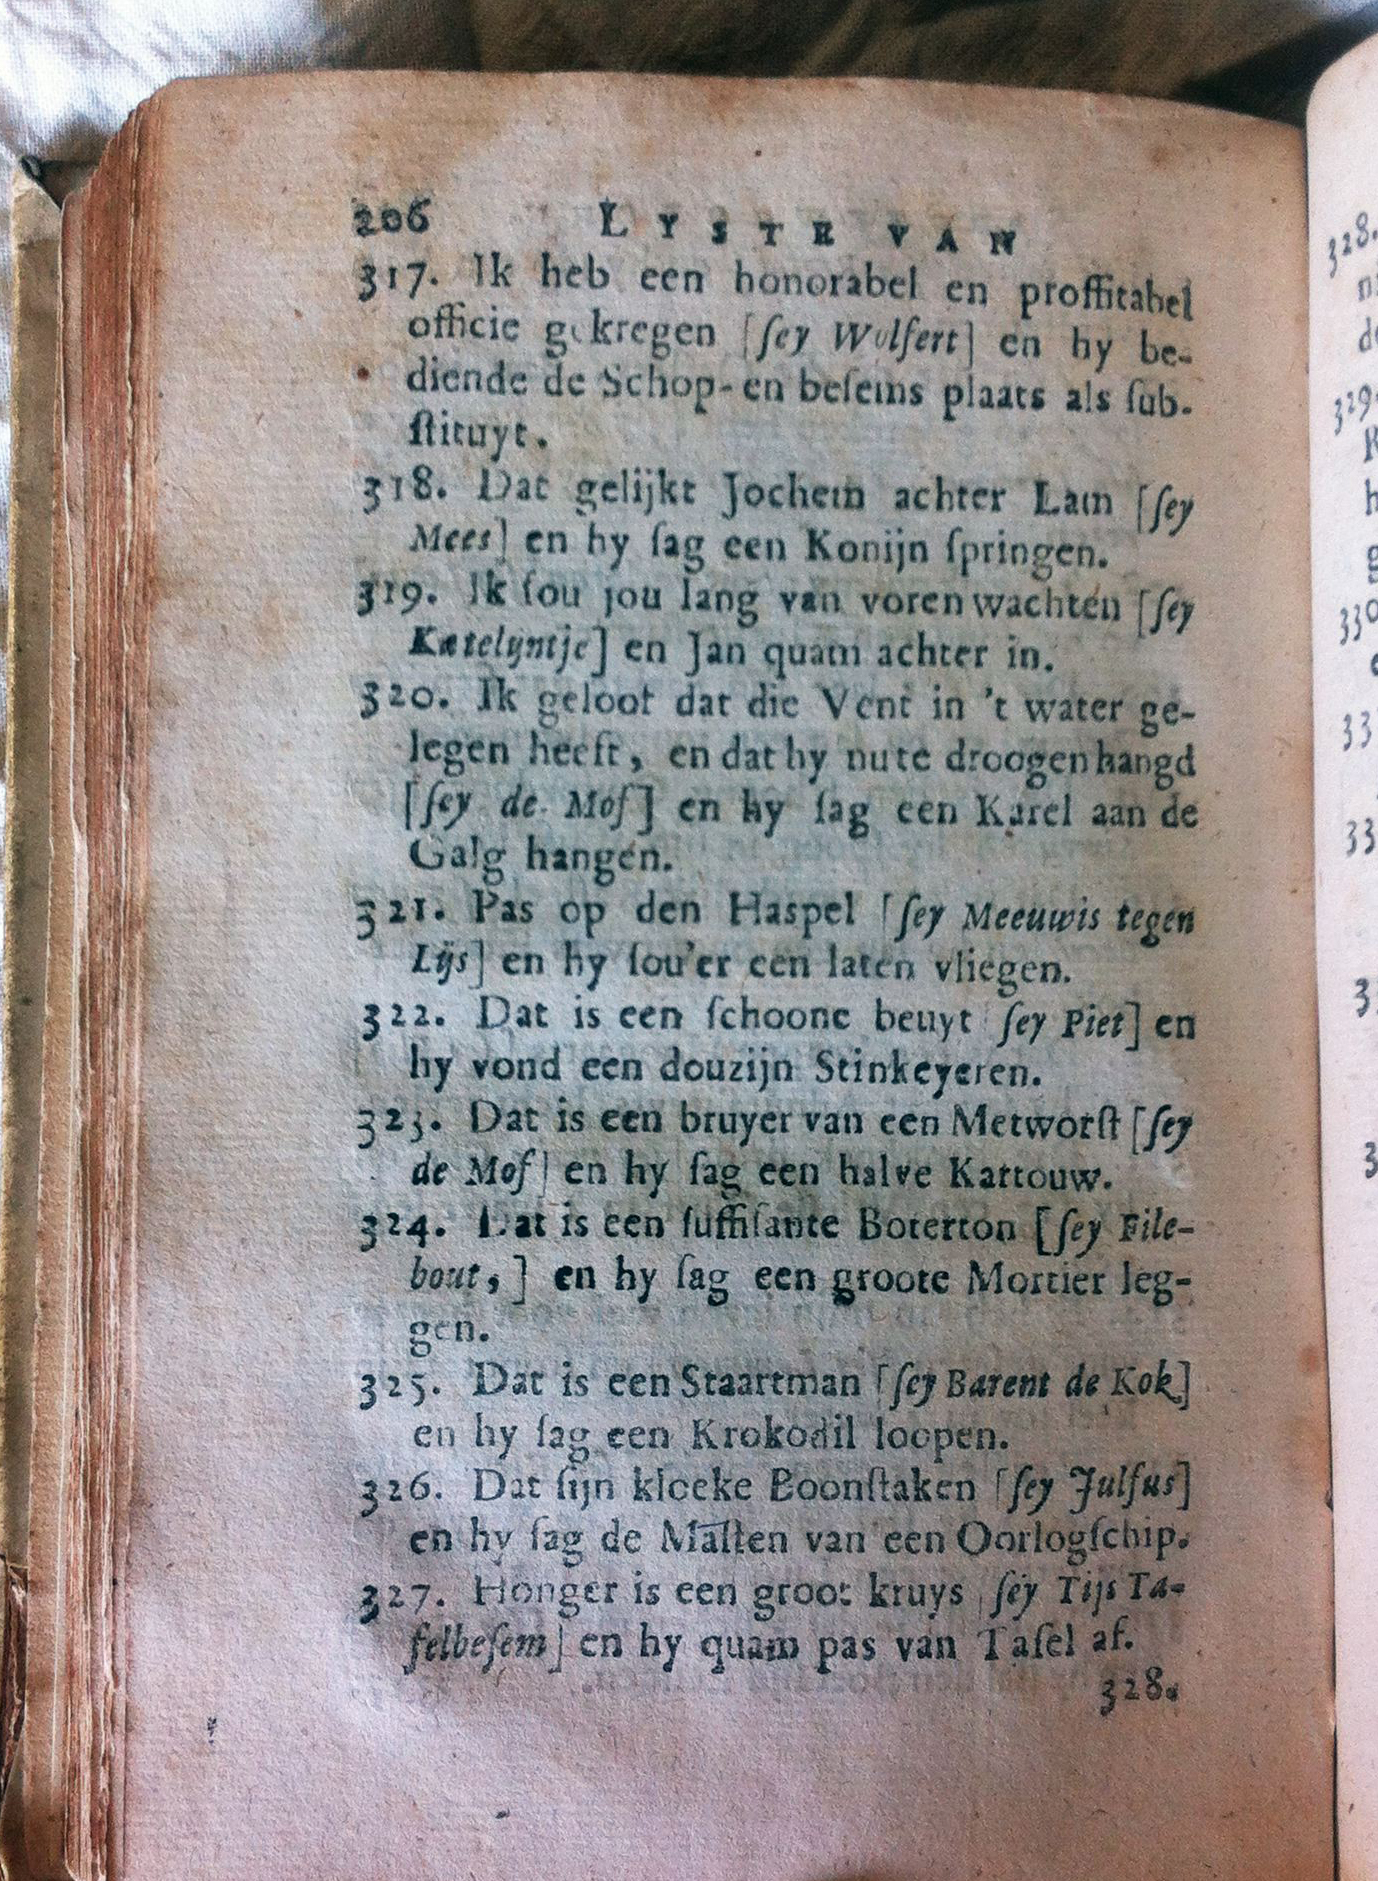 206 LYSTE VAN
317. Ik heb een honorabel en proffitabel
officie gekregen [ſey Wolfert] en hy be-
diende de Schop-en beſems plaats als ſub-
ſtituyt.
318. Dat gelijkt Jochem achter Lam [ſey
Mees] en hy ſag een Konijn ſpringen.
319. Ik ſou jou lang van voren wachten [ſey
Katelyntje] en Jan quam achter in.
320. Ik geloof dat die Vent in 't water ge-
legen heeft, en dat hy nu te droogen hangd
[ſey de Mof] en hy ſag een Karel aan de
Galg hangen.
321. Pas op den Haspel [ſey Meeuwis tegen
Lijs] en hy ſou'er een laten vliegen.
322. Dat is een ſchoone beuyt [ſey Piet] en
hy vond een douzijn Stinkeyeren.
323. Dat is een bruyer van een Metworſt [ſey
de Mof] en hy ſag een halve Kartouw.
324. Dat is een ſuffiſante Boterton [ſey File-
bout,] en hy ſag een groote Mortier leg-
gen.
325. Dat is een Staartman [ſey Barent de Kok]
en hy ſag een Krokodil loopen.
326. Dat ſijn kloeke Boonſtaken [ſey Julfus]
en hy ſag de Maſten van een Oorlogſchip.
327. Honger is een groot kruys [ſey Tijs Ta-
felbeſem] en hy quam pas van Tafel af.
328.
328.
329.
330
33
33
3
3